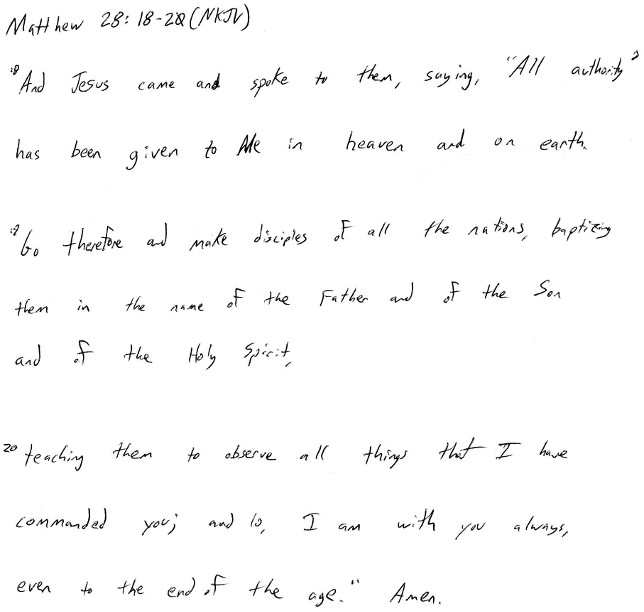 Matthew 28:18-20 (NKJV)
18 And Jesus came and spoke to them, saying, "All authority"
has been given to Me in heaven and on earth.
19 Go therefore and make disciples of all the nations, baptizing
them in the name of the Father and of the Son
and of the Holy Spirit,
20 teaching them to observe all things that I have
commanded you; and lo, I am with you always,
even to the end of the age." Amen.